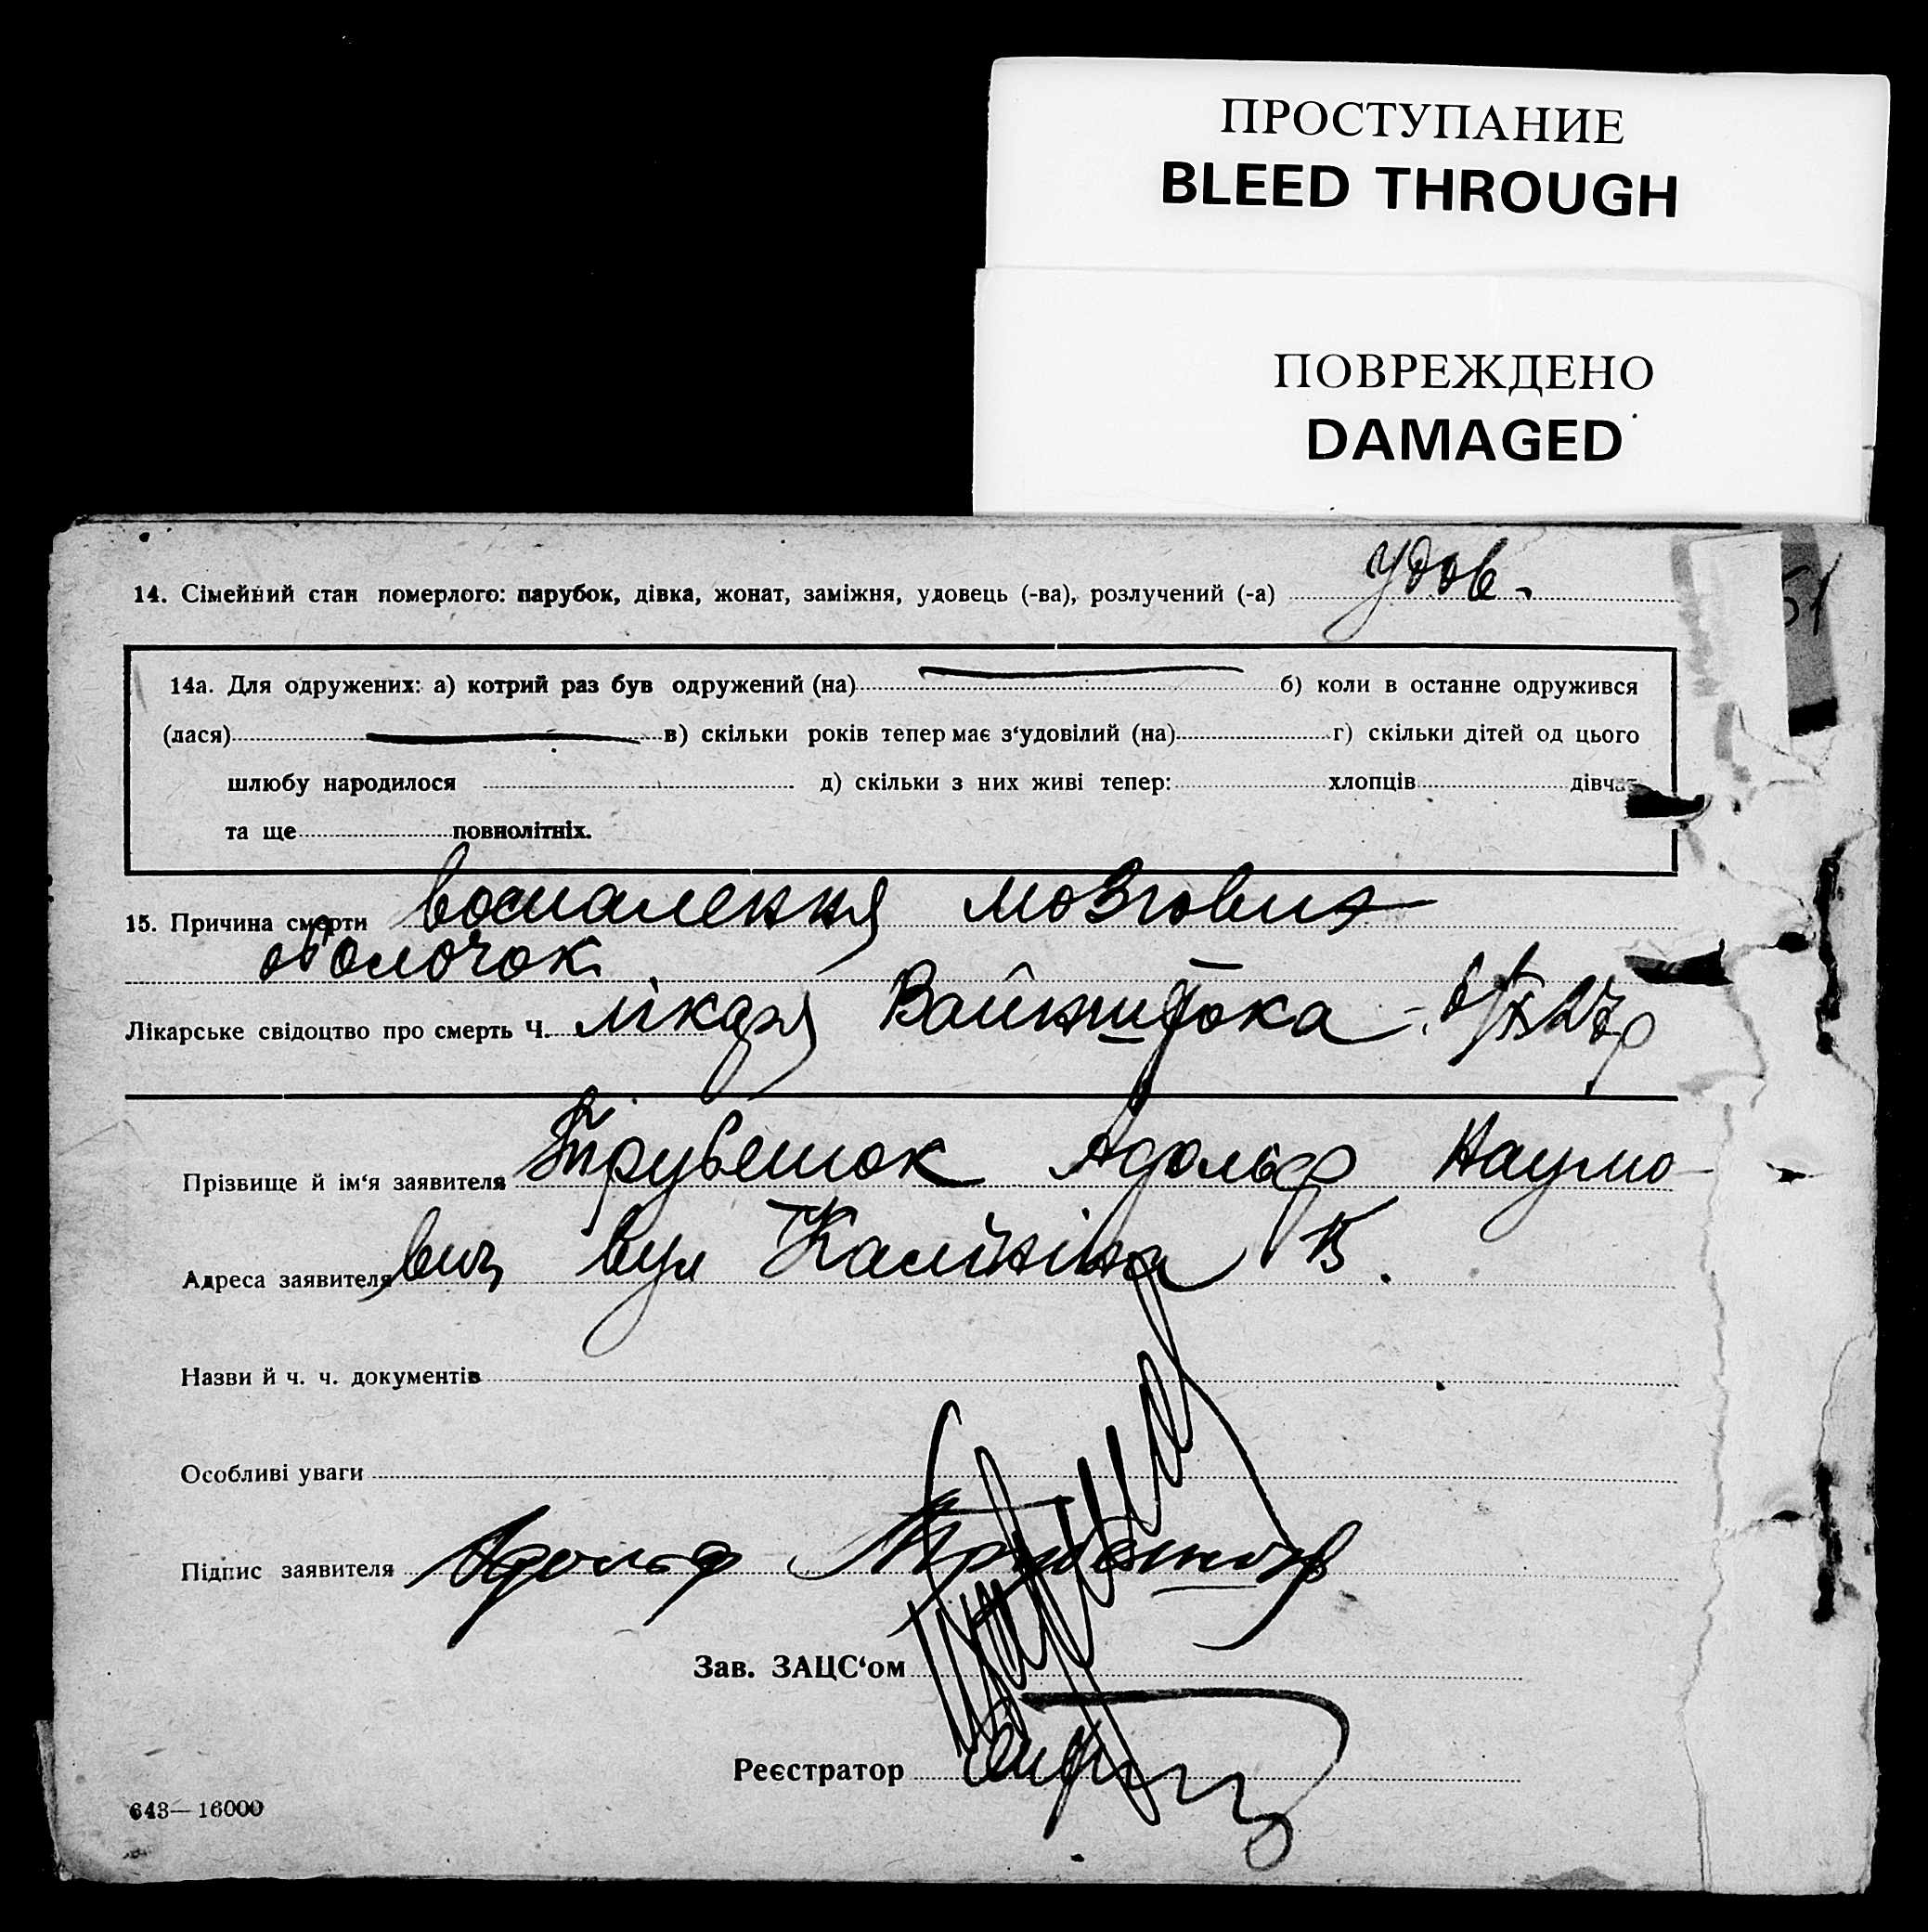 ПРОСТУПАНИЕ
BLEED THROUGH
ПОВРЕЖДЕНО
DAMAGED
14. Сімейний стан померлого: парубок, дівка, жонат, заміжня, удовець (-ва), розлучений (-а) удов.
51
14а. Для одружених: а) котрий раз був одружений (на) б) коли в останне одружився
(лася) в) скільки років тепер має з‘удовілий (на) г) скільки дітей од цього
шлюбу народилося д) скільки з них живі тепер: хлопців дівчат
та ще повнолітніх.
15. Причина смерти воспалення мозгових
оболочок
Лікарське свідоцтво про смерть Ч. лікаря 27р
Прізвище й ім‘я заявителя Адольф Наумо
Адреса заявителя вич вул Калініна 15.
Назви й ч. ч. документів
Особливі уваги
Підпис заявителя Адольф
Зав. ЗАЦС‘ом
Реєстратор
643—16000